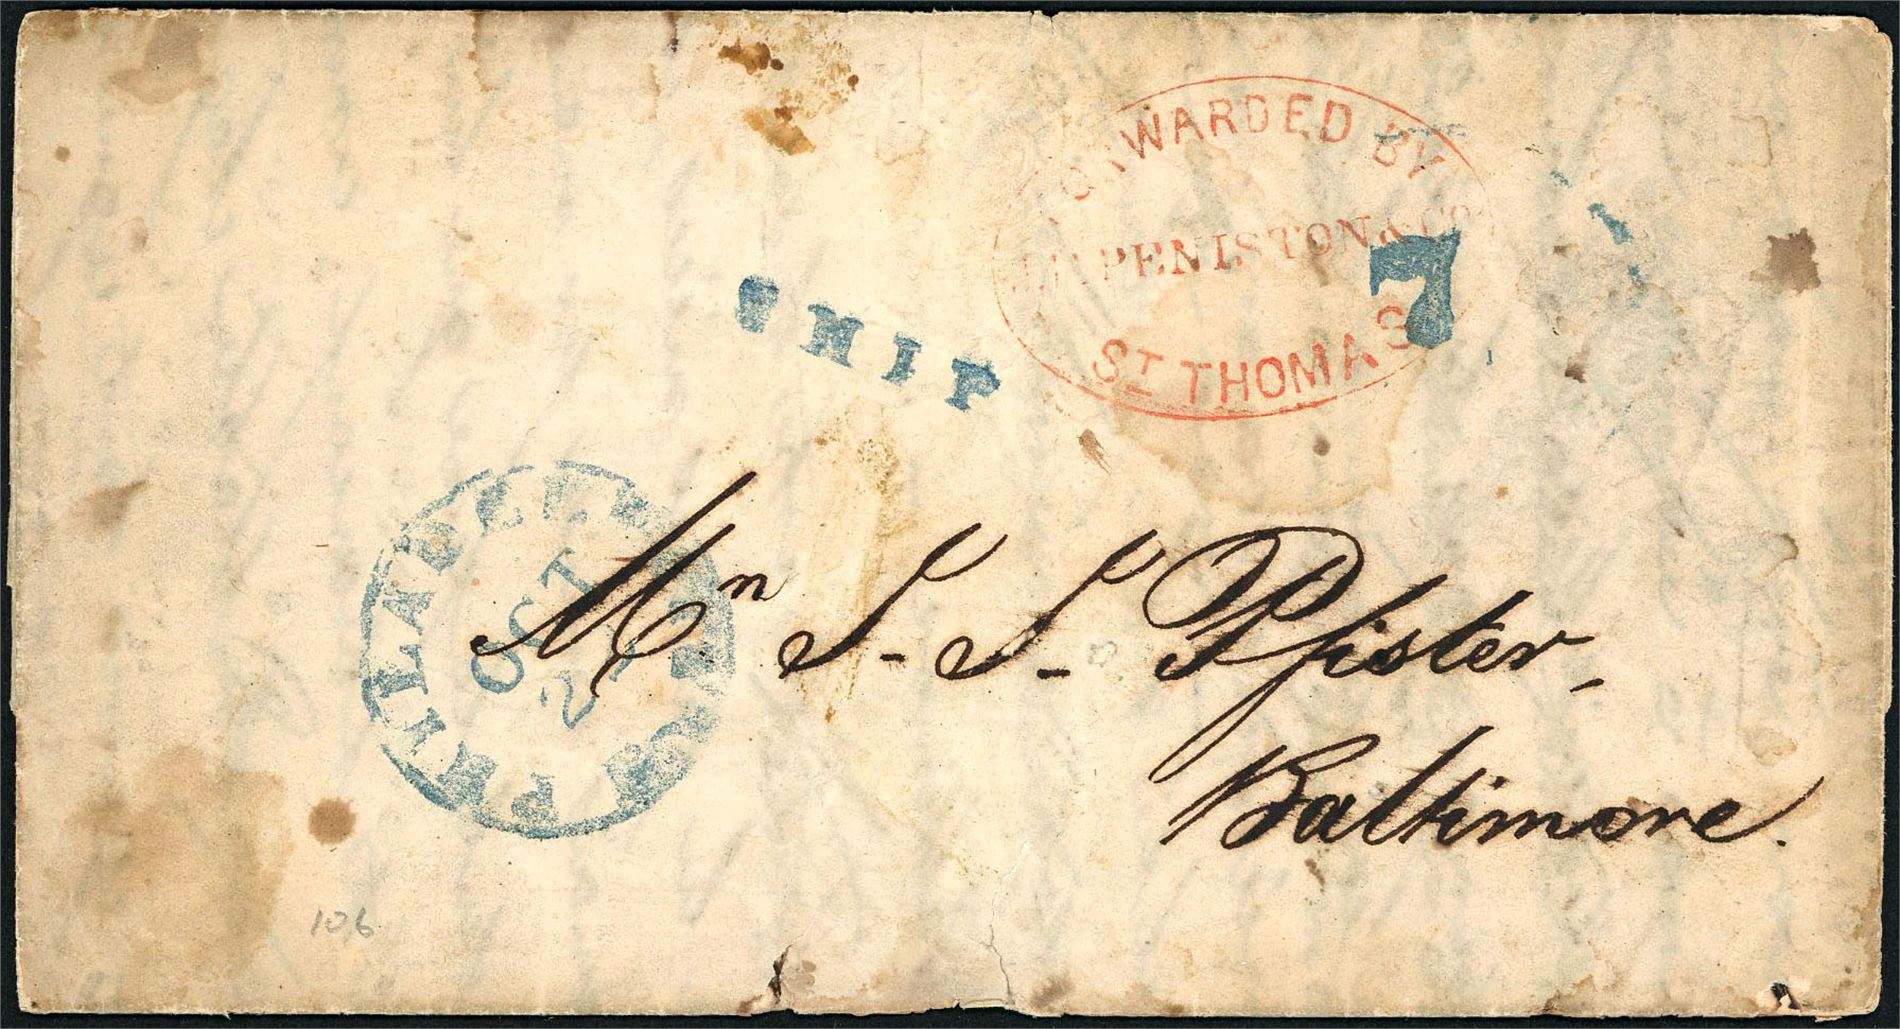 FORWARDED BY
PENISTON & Co
ST THOMAS
7
SHIP
PHILADELPHIA Pa.
OCT
Mr S. S. Pfister,
Baltimore.
106